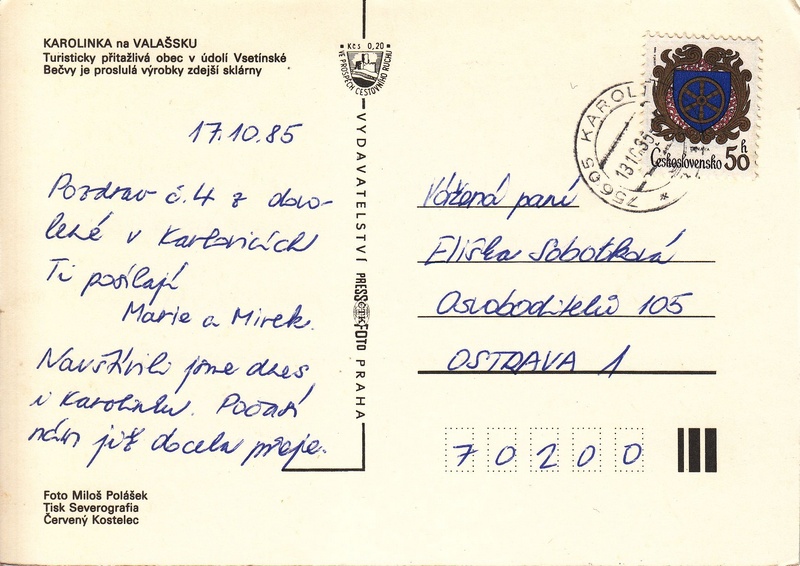 KAROLINKA na VALAŠSKU
Turisticky přitažlivá obec v údolí Vsetínské
Bečvy je proslulá výrobky zdejší sklárny
17.10.85
Pozdrav č.4 z dovo-
lené v Karlovicích
Ti posílají
Marie a Mirek.
Navštívili jsme dnes
i Karolinku. Počasí
nám již docela přeje.
Foto Miloš Polášek
Tisk Severografia
Červený Kostelec
Kčs 0,20
VE PROSPĚCH CESTOVNÍHO RUCHU
VYDAVATELSTVÍ PRESSFOTO PRAHA
ČTK
75605 KAROLI
Československo 50 h
Vážená paní
Eliška Sobotková
Osvoboditelů 105
OSTRAVA 1
70200